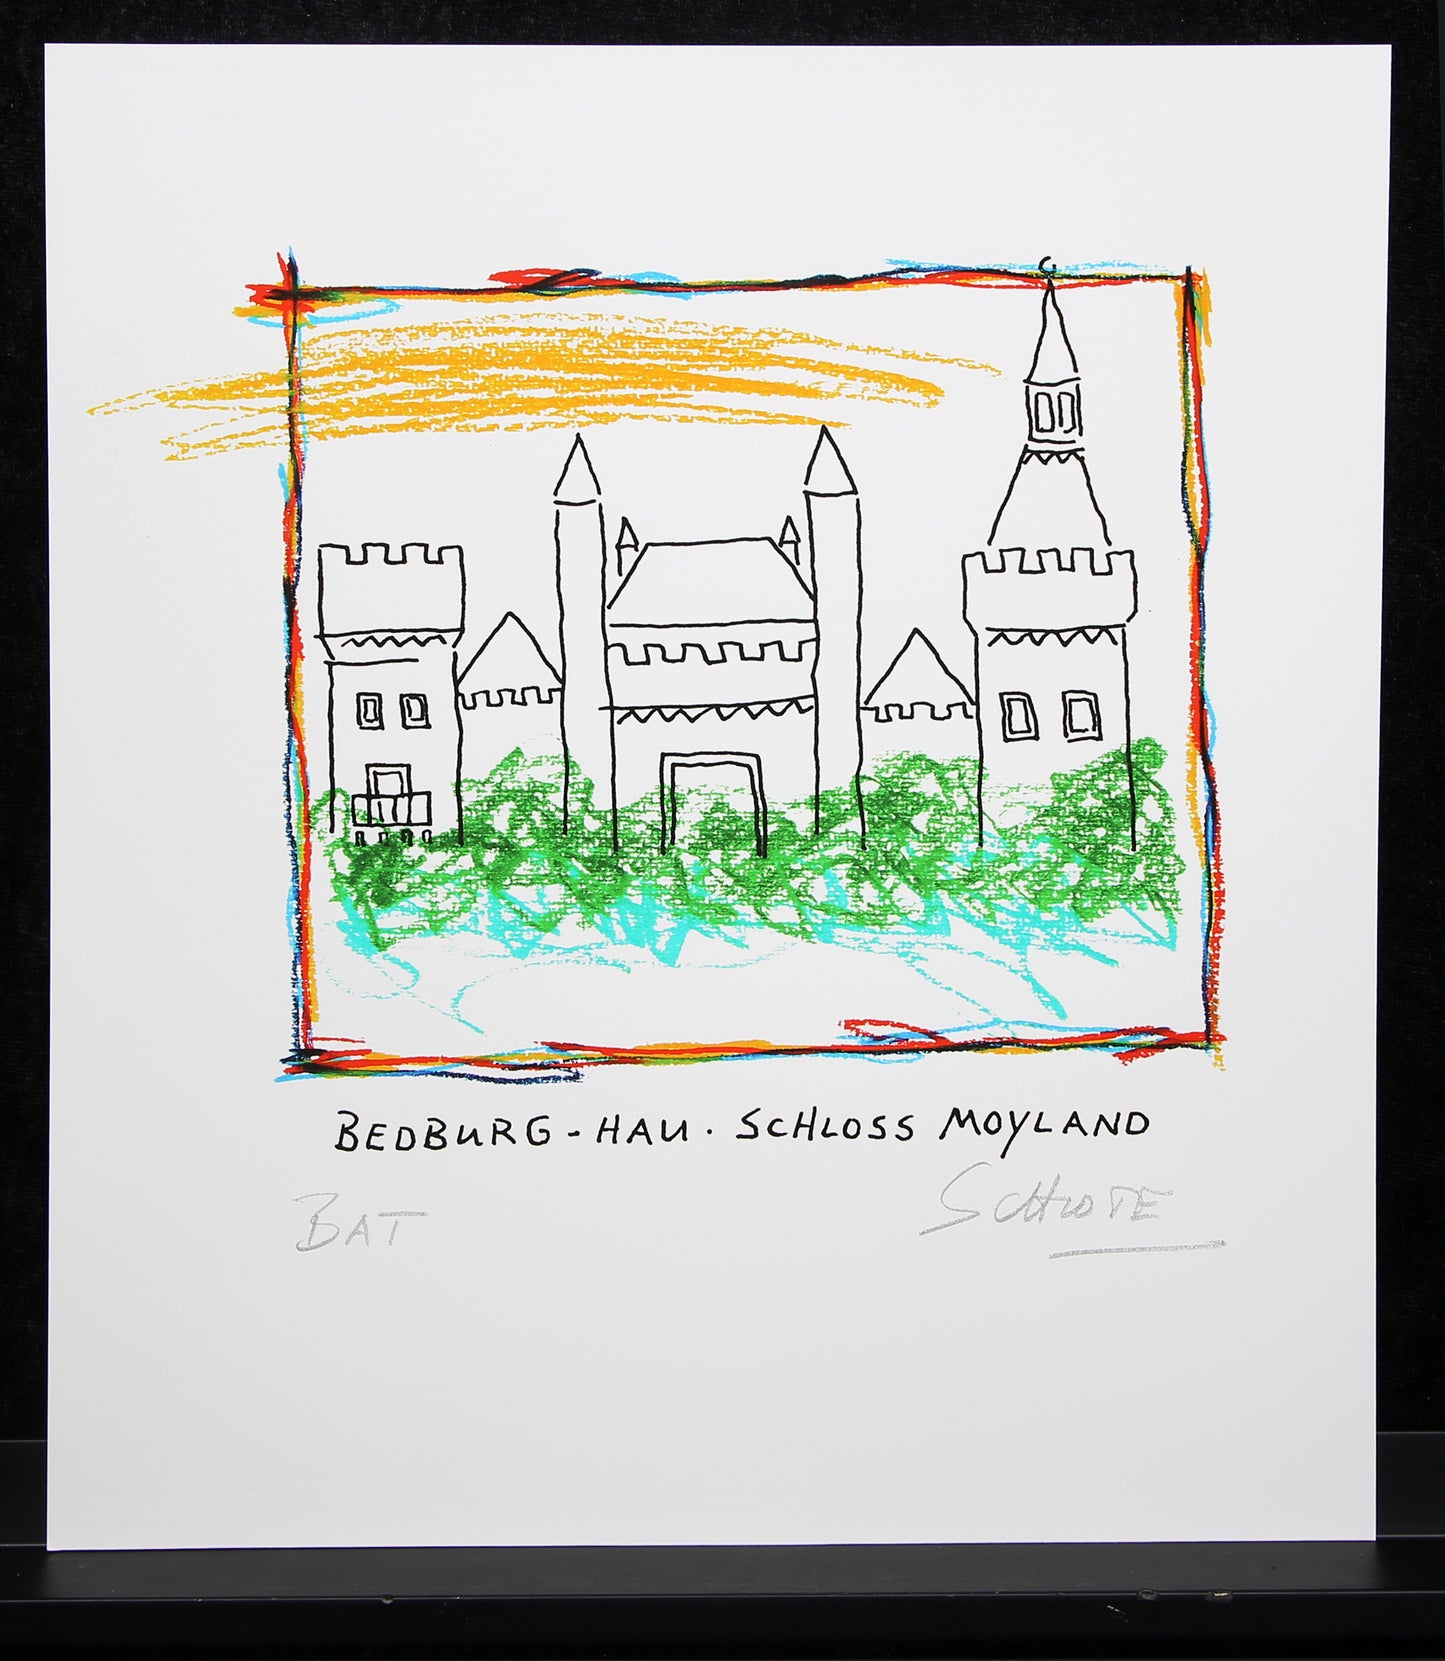 BEDBURG-HAU · SCHLOSS MOYLAND
BAT